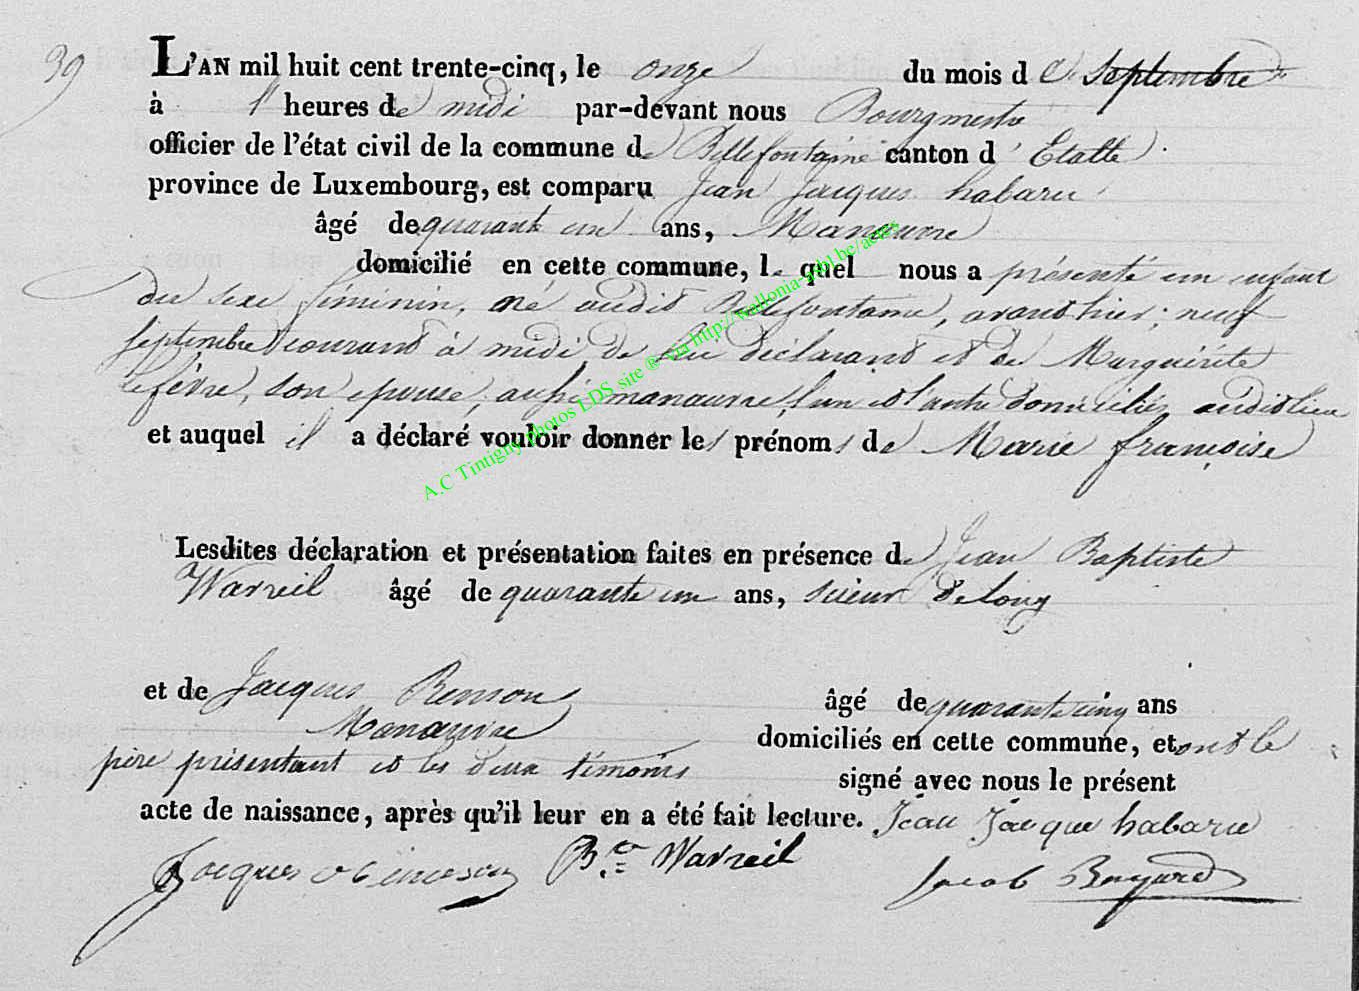 39
L'AN mil huit cent trente-cinq, le onze du mois de Septembre
à 1 heures de midi par-devant nous Bourgmestre
officier de l'état civil de la commune de Bellefontaine canton d'Etalle
province de Luxembourg, est comparu Jean Jacques habaru
âgé de quarante un ans, Manœuvre
domicilié en cette commune, le quel nous a présenté un enfant
du sexe féminin, né audit Bellefontaine, avant hier, neuf
septembre courant à midi, de lui déclarant et de Marguerite
lefèvre, son épouse, aussi manœuvre, l'un et l'autre domiciliés audit lieu
et auquel il a déclaré vouloir donner les prénoms de Marie françoise
Lesdites déclaration et présentation faites en présence de Jean Baptiste
Warzeil âgé de quarante un ans, scieur de long
et de Jacques âgé de quarante cinq ans
Manœuvre domiciliés en cette commune, et ont le
père présentant et les deux témoins signé avec nous le présent
acte de naissance, après qu'il leur en a été fait lecture. Jean Jacque habaru
Jacques Bte Warzeil Jacob
A.C Tintigny photos LDS site ® via http://wallonia-asbl.be/actes